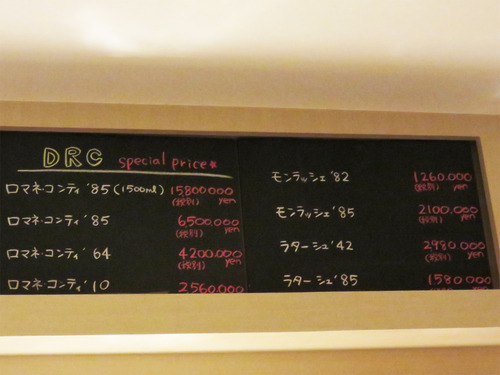 DRC special price*
ロマネ・コンティ '85 (1500ml) 15800000
(税別) yen
ロマネ・コンティ '85 6,500.000
(税別) yen
ロマネ・コンティ '64 4200.000
(税別) yen
ロマネ・コンティ '10 2,560.000
モンラッシェ '82 1260.000
(税別) yen
モンラッシェ '85 2100.000
(税別) yen
ラターシュ '42 2980.000
(税別) yen
ラターシュ '85 1580.000